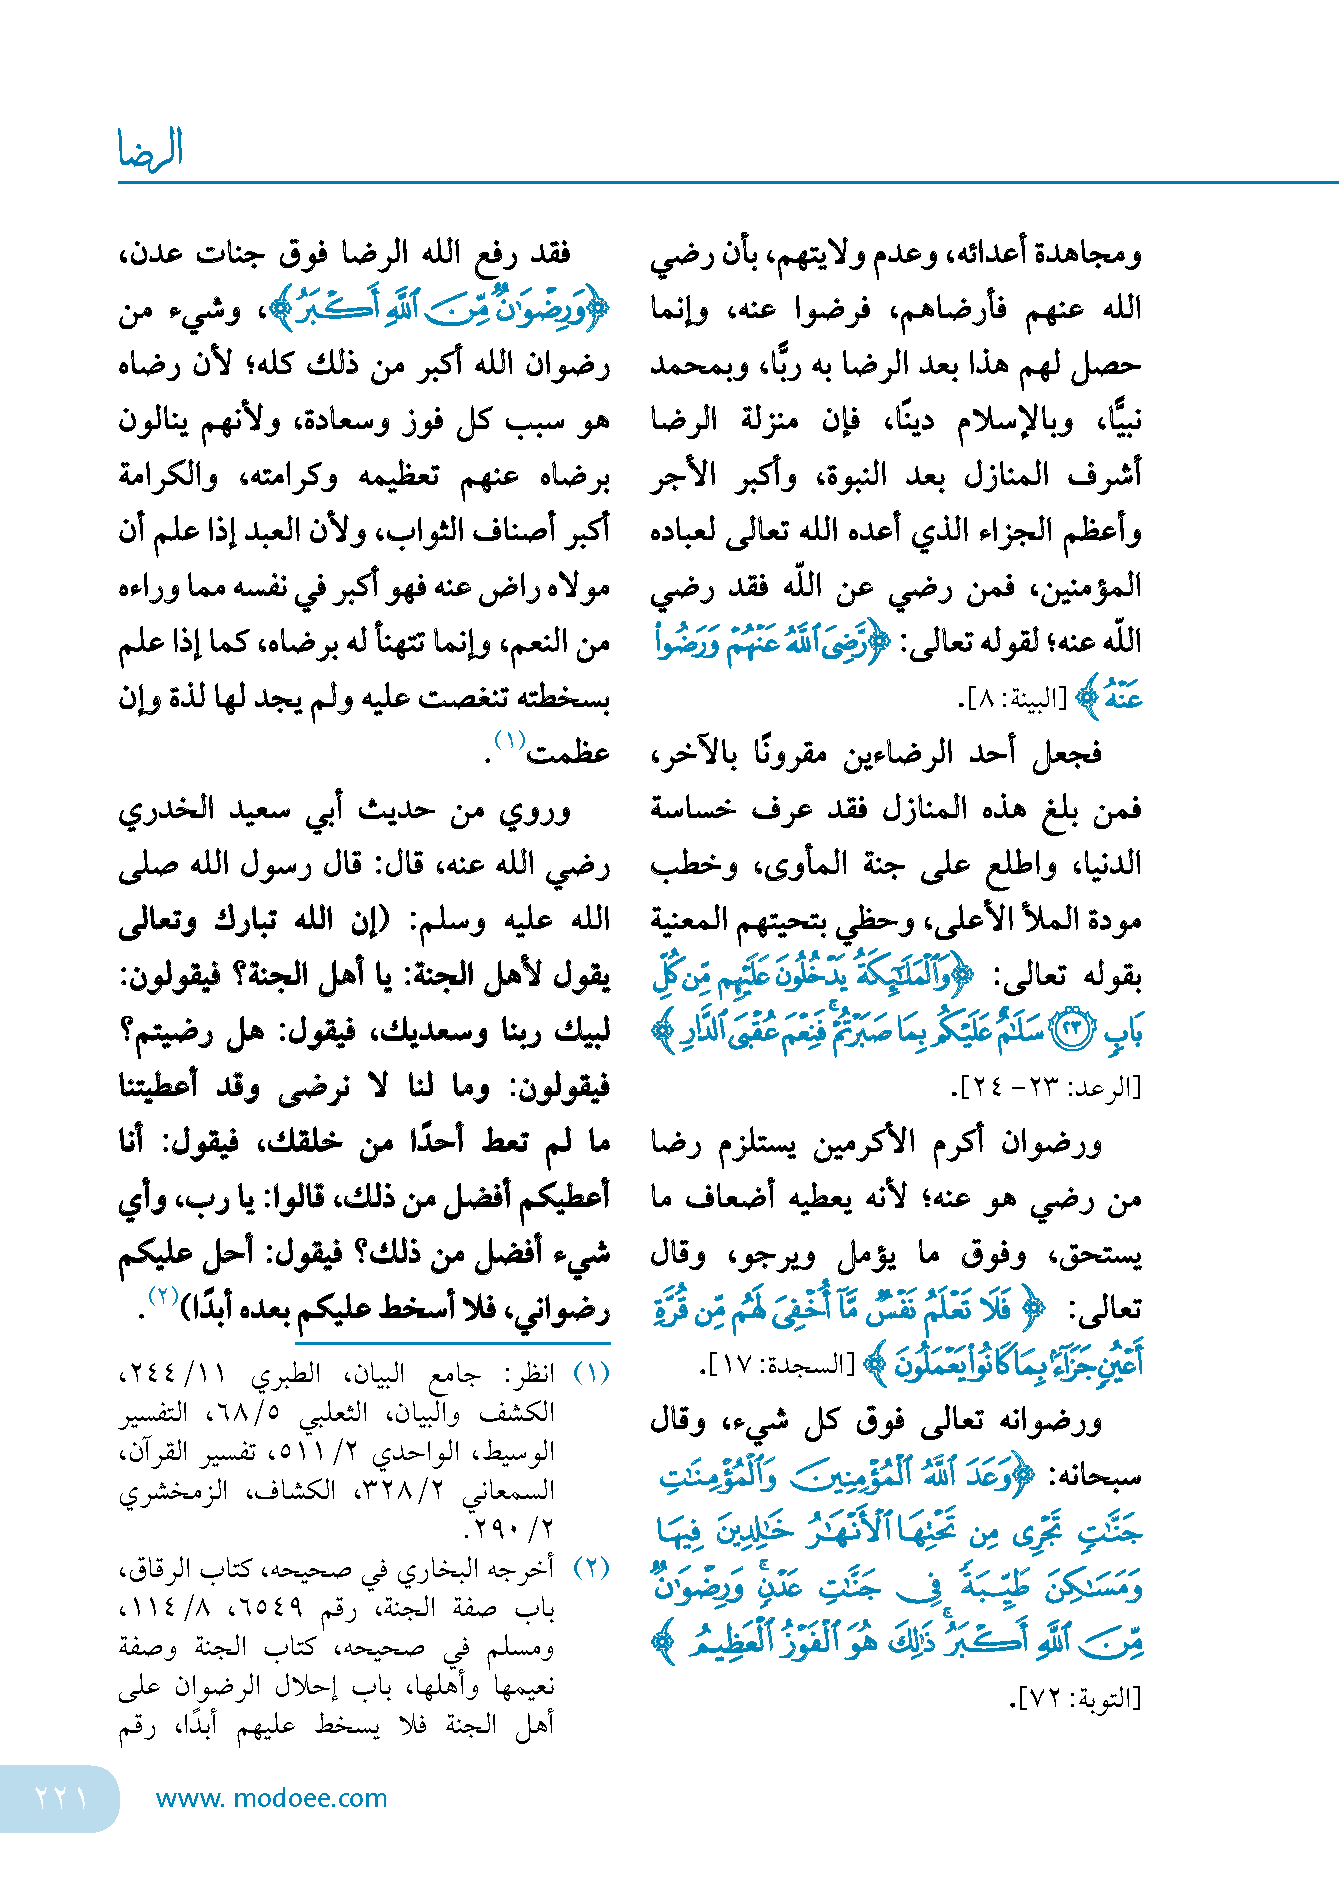 الرضا
ومجاهدة أعدائه، وعدم ولايتهم، بأن رضي
الله عنهم فأرضاهم، فرضوا عنه، وإنما
حصل لهم هذا بعد الرضا به ربًّا، وبمحمد
نبيًّا، وبالإسلام دينًا، فإن منزلة الرضا
أشرف المنازل بعد النبوة، وأكبر الأجر
وأعظم الجزاء الذي أعده الله تعالى لعباده
المؤمنين، فمن رضي عن اللّه فقد رضي
اللّه عنه؛ لقوله تعالى: ﴿رَّضِيَ ٱللَّهُ عَنْهُمْ وَرَضُوا۟
عَنْهُ﴾ [البينة: ٨].
فجعل أحد الرضاءين مقرونًا بالآخر،
فمن بلغ هذه المنازل فقد عرف خساسة
الدنيا، واطلع على جنة المأوى، وخطب
مودة الملأ الأعلى، وحظي بتحيتهم المعنية
بقوله تعالى: ﴿وَٱلْمَلَٰٓئِكَةُ يَدْخُلُونَ عَلَيْهِم مِّن كُلِّ
بَابٍ ٢٣ سَلَٰمٌ عَلَيْكُم بِمَا صَبَرْتُمْ ۚ فَنِعْمَ عُقْبَى ٱلدَّارِ﴾
[الرعد: ٢٣- ٢٤].
ورضوان أكرم الأكرمين يستلزم رضا
من رضي هو عنه؛ لأنه يعطيه أضعاف ما
يستحق، وفوق ما يؤمل ويرجو، وقال
تعالى: ﴿فَلَا تَعْلَمُ نَفْسٌ مَّآ أُخْفِىَ لَهُم مِّن قُرَّةِ
أَعْيُنٍ جَزَآءًۢ بِمَا كَانُوا۟ يَعْمَلُونَ﴾ [السجدة: ١٧].
ورضوانه تعالى فوق كل شيء، وقال
سبحانه: ﴿وَعَدَ ٱللَّهُ ٱلْمُؤْمِنِينَ وَٱلْمُؤْمِنَٰتِ
جَنَّٰتٍ تَجْرِى مِن تَحْتِهَا ٱلْأَنْهَٰرُ خَٰلِدِينَ فِيهَا
وَمَسَٰكِنَ طَيِّبَةً فِى جَنَّٰتِ عَدْنٍ ۚ وَرِضْوَٰنٌ
مِّنَ ٱللَّهِ أَكْبَرُ ۚ ذَٰلِكَ هُوَ ٱلْفَوْزُ ٱلْعَظِيمُ﴾
[التوبة: ٧٢].
فقد رفع الله الرضا فوق جنات عدن،
﴿وَرِضْوَٰنٌ مِّنَ ٱللَّهِ أَكْبَرُ﴾، وشيء من
رضوان الله أكبر من ذلك كله؛ لأن رضاه
هو سبب كل فوز وسعادة، ولأنهم ينالون
برضاه عنهم تعظيمه وكرامته، والكرامة
أكبر أصناف الثواب، ولأن العبد إذا علم أن
مولاه راض عنه فهو أكبر في نفسه مما وراءه
من النعم، وإنما تتهنأ له برضاه، كما إذا علم
بسخطته تنغصت عليه ولم يجد لها لذة وإن
عظمت(١).
وروي من حديث أبي سعيد الخدري
رضي الله عنه، قال: قال رسول الله صلى
الله عليه وسلم: (إن الله تبارك وتعالى
يقول لأهل الجنة: يا أهل الجنة؟ فيقولون:
لبيك ربنا وسعديك، فيقول: هل رضيتم؟
فيقولون: وما لنا لا نرضى وقد أعطيتنا
ما لم تعط أحدًا من خلقك، فيقول: أنا
أعطيكم أفضل من ذلك، قالوا: يا رب، وأي
شيء أفضل من ذلك؟ فيقول: أحل عليكم
رضواني، فلا أسخط عليكم بعده أبدًا)(٢).
(١) انظر: جامع البيان، الطبري ١١/ ٢٤٤،
الكشف والبيان، الثعلبي ٥/ ٦٨، التفسير
الوسيط، الواحدي ٢/ ٥١١، تفسير القرآن،
السمعاني ٢/ ٣٢٨، الكشاف، الزمخشري
٢/ ٢٩٠.
(٢) أخرجه البخاري في صحيحه، كتاب الرقاق،
باب صفة الجنة، رقم ٦٥٤٩، ٨/ ١١٤،
ومسلم في صحيحه، كتاب الجنة وصفة
نعيمها وأهلها، باب إحلال الرضوان على
أهل الجنة فلا يسخط عليهم أبدًا، رقم
www. modoee.com
٢٢١